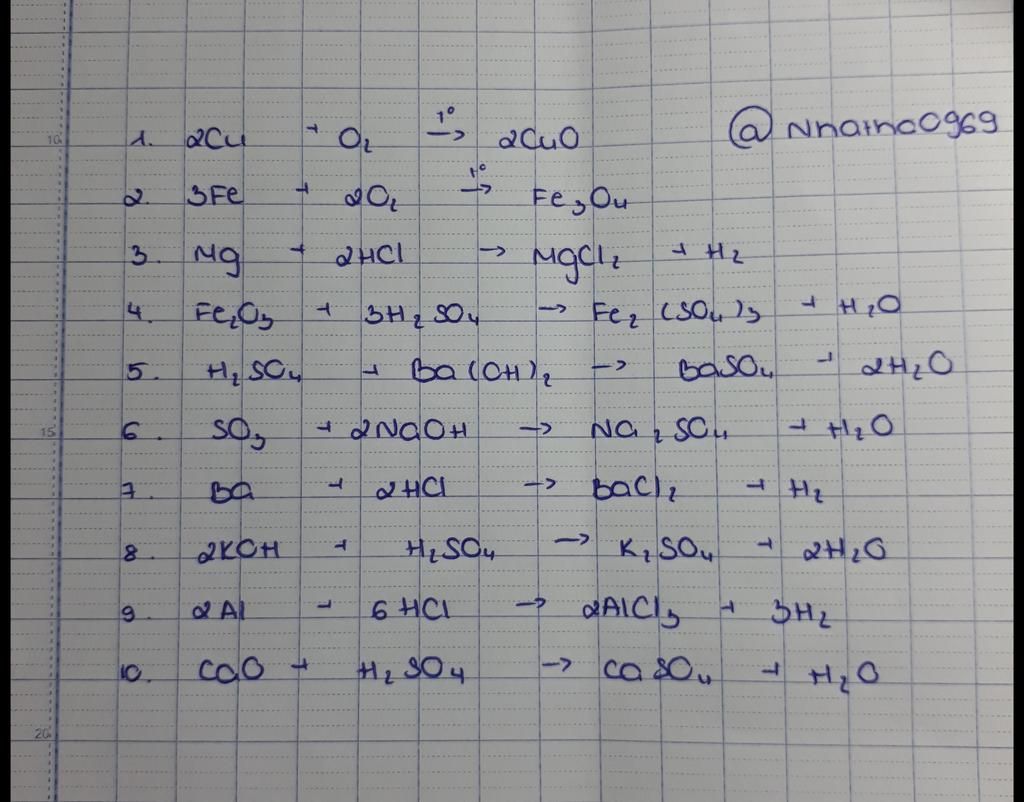 1. 2Cu + O₂ →(t°) 2CuO @Nhatho0969
2. 3Fe + 2O₂ →(t°) Fe₃O₄
3. Mg + 2HCl → MgCl₂ + H₂
4. Fe₂O₃ + 3H₂SO₄ → Fe₂(SO₄)₃ + H₂O
5. H₂SO₄ + Ba(OH)₂ → BaSO₄ + 2H₂O
6. SO₃ + 2NaOH → Na₂SO₄ + H₂O
7. Ba + 2HCl → BaCl₂ + H₂
8. 2KOH + H₂SO₄ → K₂SO₄ + 2H₂O
9. 2Al + 6HCl → 2AlCl₃ + 3H₂
10. CaO + H₂SO₄ → CaSO₄ + H₂O